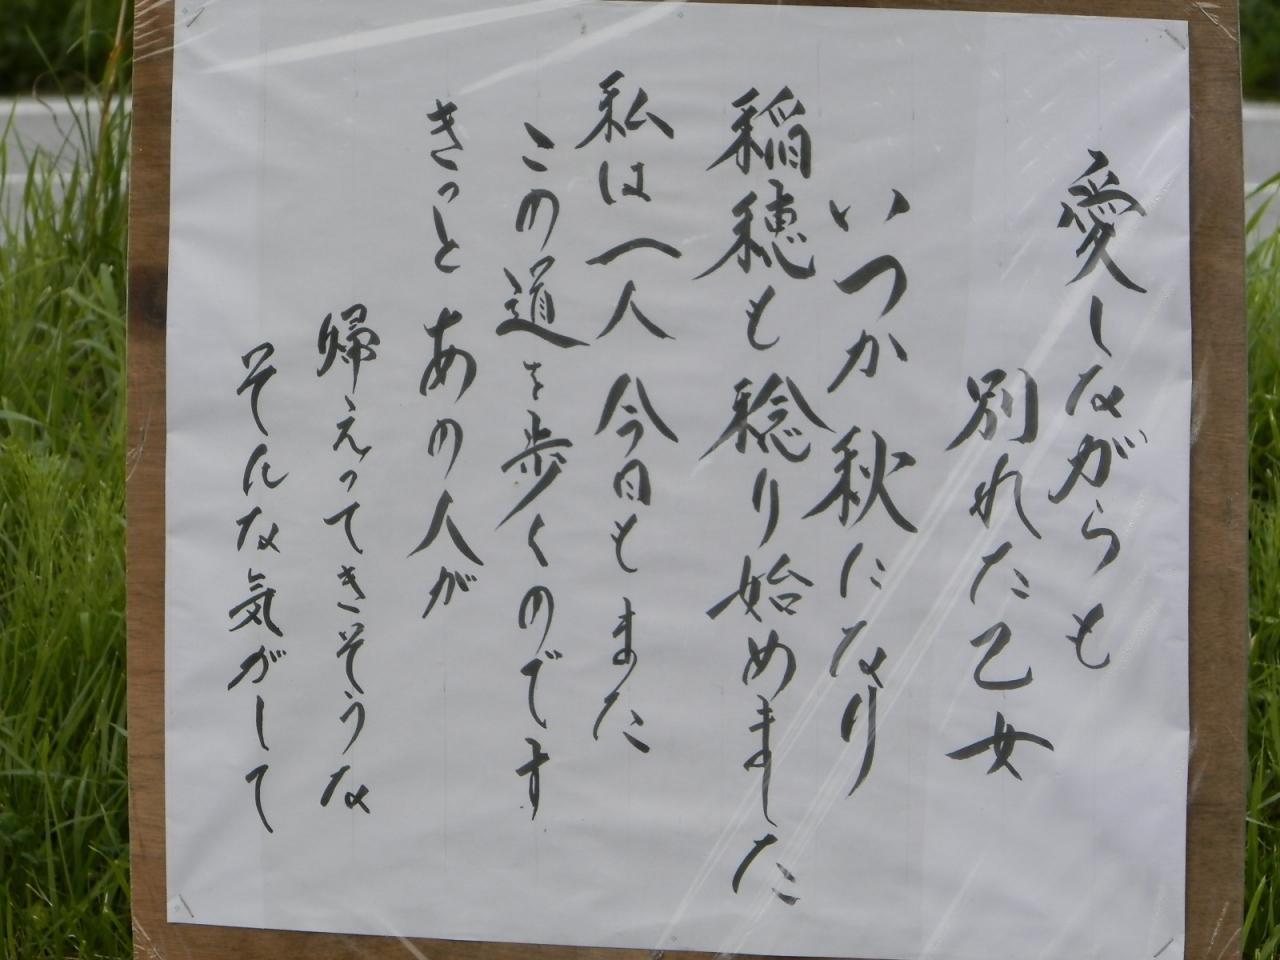 愛しながらも
別れた乙女
いつか秋になり
稲穂も稔り始めました
私は一人 今日もまた
この道を歩くのです
きっと あの人が
帰えってきそうな
そんな気がして